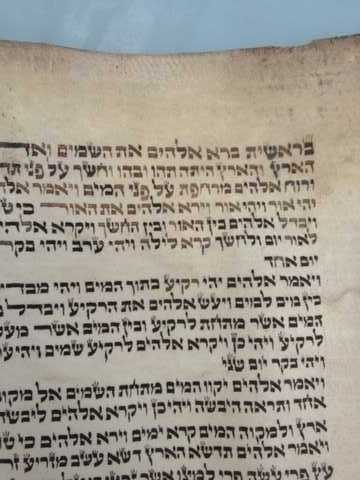 בראשית ברא אלהים את השמים ואת
הארץ והארץ היתה תהו ובהו וחשך על פני תה
ורוח אלהים מרחפת על פני המים ויאמר אלה
יהי אור ויהי אור וירא אלהים את האור כי ט
ויבדל אלהים בין האור ובין החשך ויקרא אלה
לאור יום ולחשך קרא לילה ויהי ערב ויהי בקר
יום אחד
ויאמר אלהים יהי רקיע בתוך המים ויהי מבדי
בין מים למים ויעש אלהים את הרקיע ויבדל
המים אשר מתחת לרקיע ובין המים אשר מעל
לרקיע ויהי כן ויקרא אלהים לרקיע שמים ויהי ע
ויהי בקר יום שני
ויאמר אלהים יקוו המים מתחת השמים אל מקום
אחד ותראה היבשה ויהי כן ויקרא אלהים ליבשה
ארץ ולמקוה המים קרא ימים וירא אלהים כי ט
ויאמר אלהים תדשא הארץ דשא עשב מזריע זר
עץ פרי עשה פרי למינו אשר